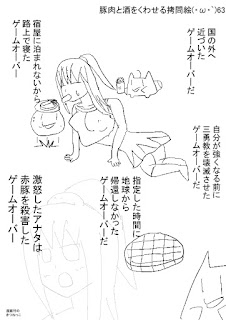 豚肉と酒をくわせる拷問絵(･ω･`)63
国の外へ
近づいた
ゲームオーバーだ
宿屋に泊まれないから
路上で寝た
ゲームオーバー
自分が強くなる前に
三勇教を壊滅させた
ゲームオーバーだ
指定した時間に
地球から
帰還しなかった
ゲームオーバーだ
激怒したアナタは
赤豚を殺害した
ゲームオーバー